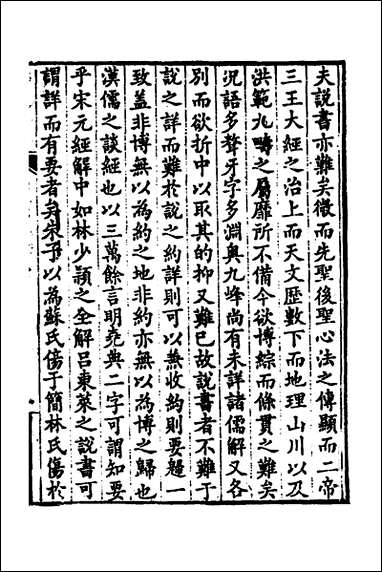 夫説書亦難矣微而先聖後聖心法之傳顯而二帝
三王大經之治上而天文歴數下而地理山川以及
洪範九疇之屬靡所不備今欲博綜而條貫之難矣
況語多聱牙字多淵奥九峰尚有未詳諸儒解又各
别而欲折中以取其的抑又難已故説書者不難于
説之詳而難於説之約詳則可以兼收約則要趨一
致蓋非博無以為約之地非約亦無以為博之歸也
漢儒之談經也以三萬餘言明堯典二字可謂知要
乎宋元經解中如林少頴之全解吕東萊之說書可
謂詳而有要者矣朱子以為蘇氏傷于簡林氏傷於